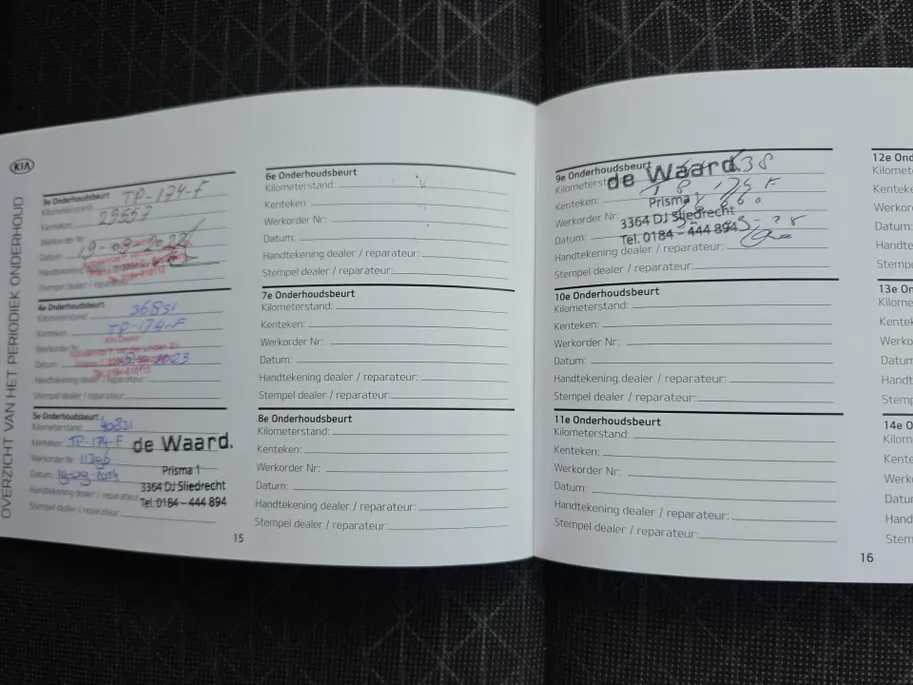 KIA
OVERZICHT VAN HET PERIODIEK ONDERHOUD
3e Onderhoudsbeurt
TP-174-F
Kilometerstand:
Kenteken: 29557
Werkorder Nr:
Datum: 19-09-2022
Handtekening dealer
Stempel dealer / reparateur:
4e Onderhoudsbeurt
Kilometerstand: 36831
Kenteken: TP-174-F
Werkorder Nr:
Datum: 2023
Handtekening dealer / reparateur:
Stempel dealer / reparateur:
5e Onderhoudsbeurt
Kilometerstand: 40831
Kenteken: TP-174-F
Werkorder Nr:
Datum:
Handtekening dealer / reparateur:
Stempel dealer / reparateur:
de Waard.
Prisma 1
3364 DJ Sliedrecht
Tel. 0184 - 444 894
15
6e Onderhoudsbeurt
Kilometerstand:
Kenteken:
Werkorder Nr:
Datum:
Handtekening dealer / reparateur:
Stempel dealer / reparateur:
7e Onderhoudsbeurt
Kilometerstand:
Kenteken:
Werkorder Nr:
Datum:
Handtekening dealer / reparateur:
Stempel dealer / reparateur:
8e Onderhoudsbeurt
Kilometerstand:
Kenteken:
Werkorder Nr:
Datum:
Handtekening dealer / reparateur:
Stempel dealer / reparateur:
9e Onderhoudsbeurt
Kilometerst
Kenteken:
Werkorder Nr:
Datum:
Handtekening dealer / reparateur:
Stempel dealer / reparateur:
de Waard.
Prisma 1
3364 DJ Sliedrecht
Tel. 0184 - 444 894
10e Onderhoudsbeurt
Kilometerstand:
Kenteken:
Werkorder Nr:
Datum:
Handtekening dealer / reparateur:
Stempel dealer / reparateur:
11e Onderhoudsbeurt
Kilometerstand:
Kenteken:
Werkorder Nr:
Datum:
Handtekening dealer / reparateur:
Stempel dealer / reparateur:
16
12e Ond
Kilomete
Kenteke
Werkord
Datum:
Handte
Stempe
13e On
Kilome
Kentek
Werko
Datum
Handt
Stemp
14e O
Kilom
Kente
Werk
Datu
Hand
Stem